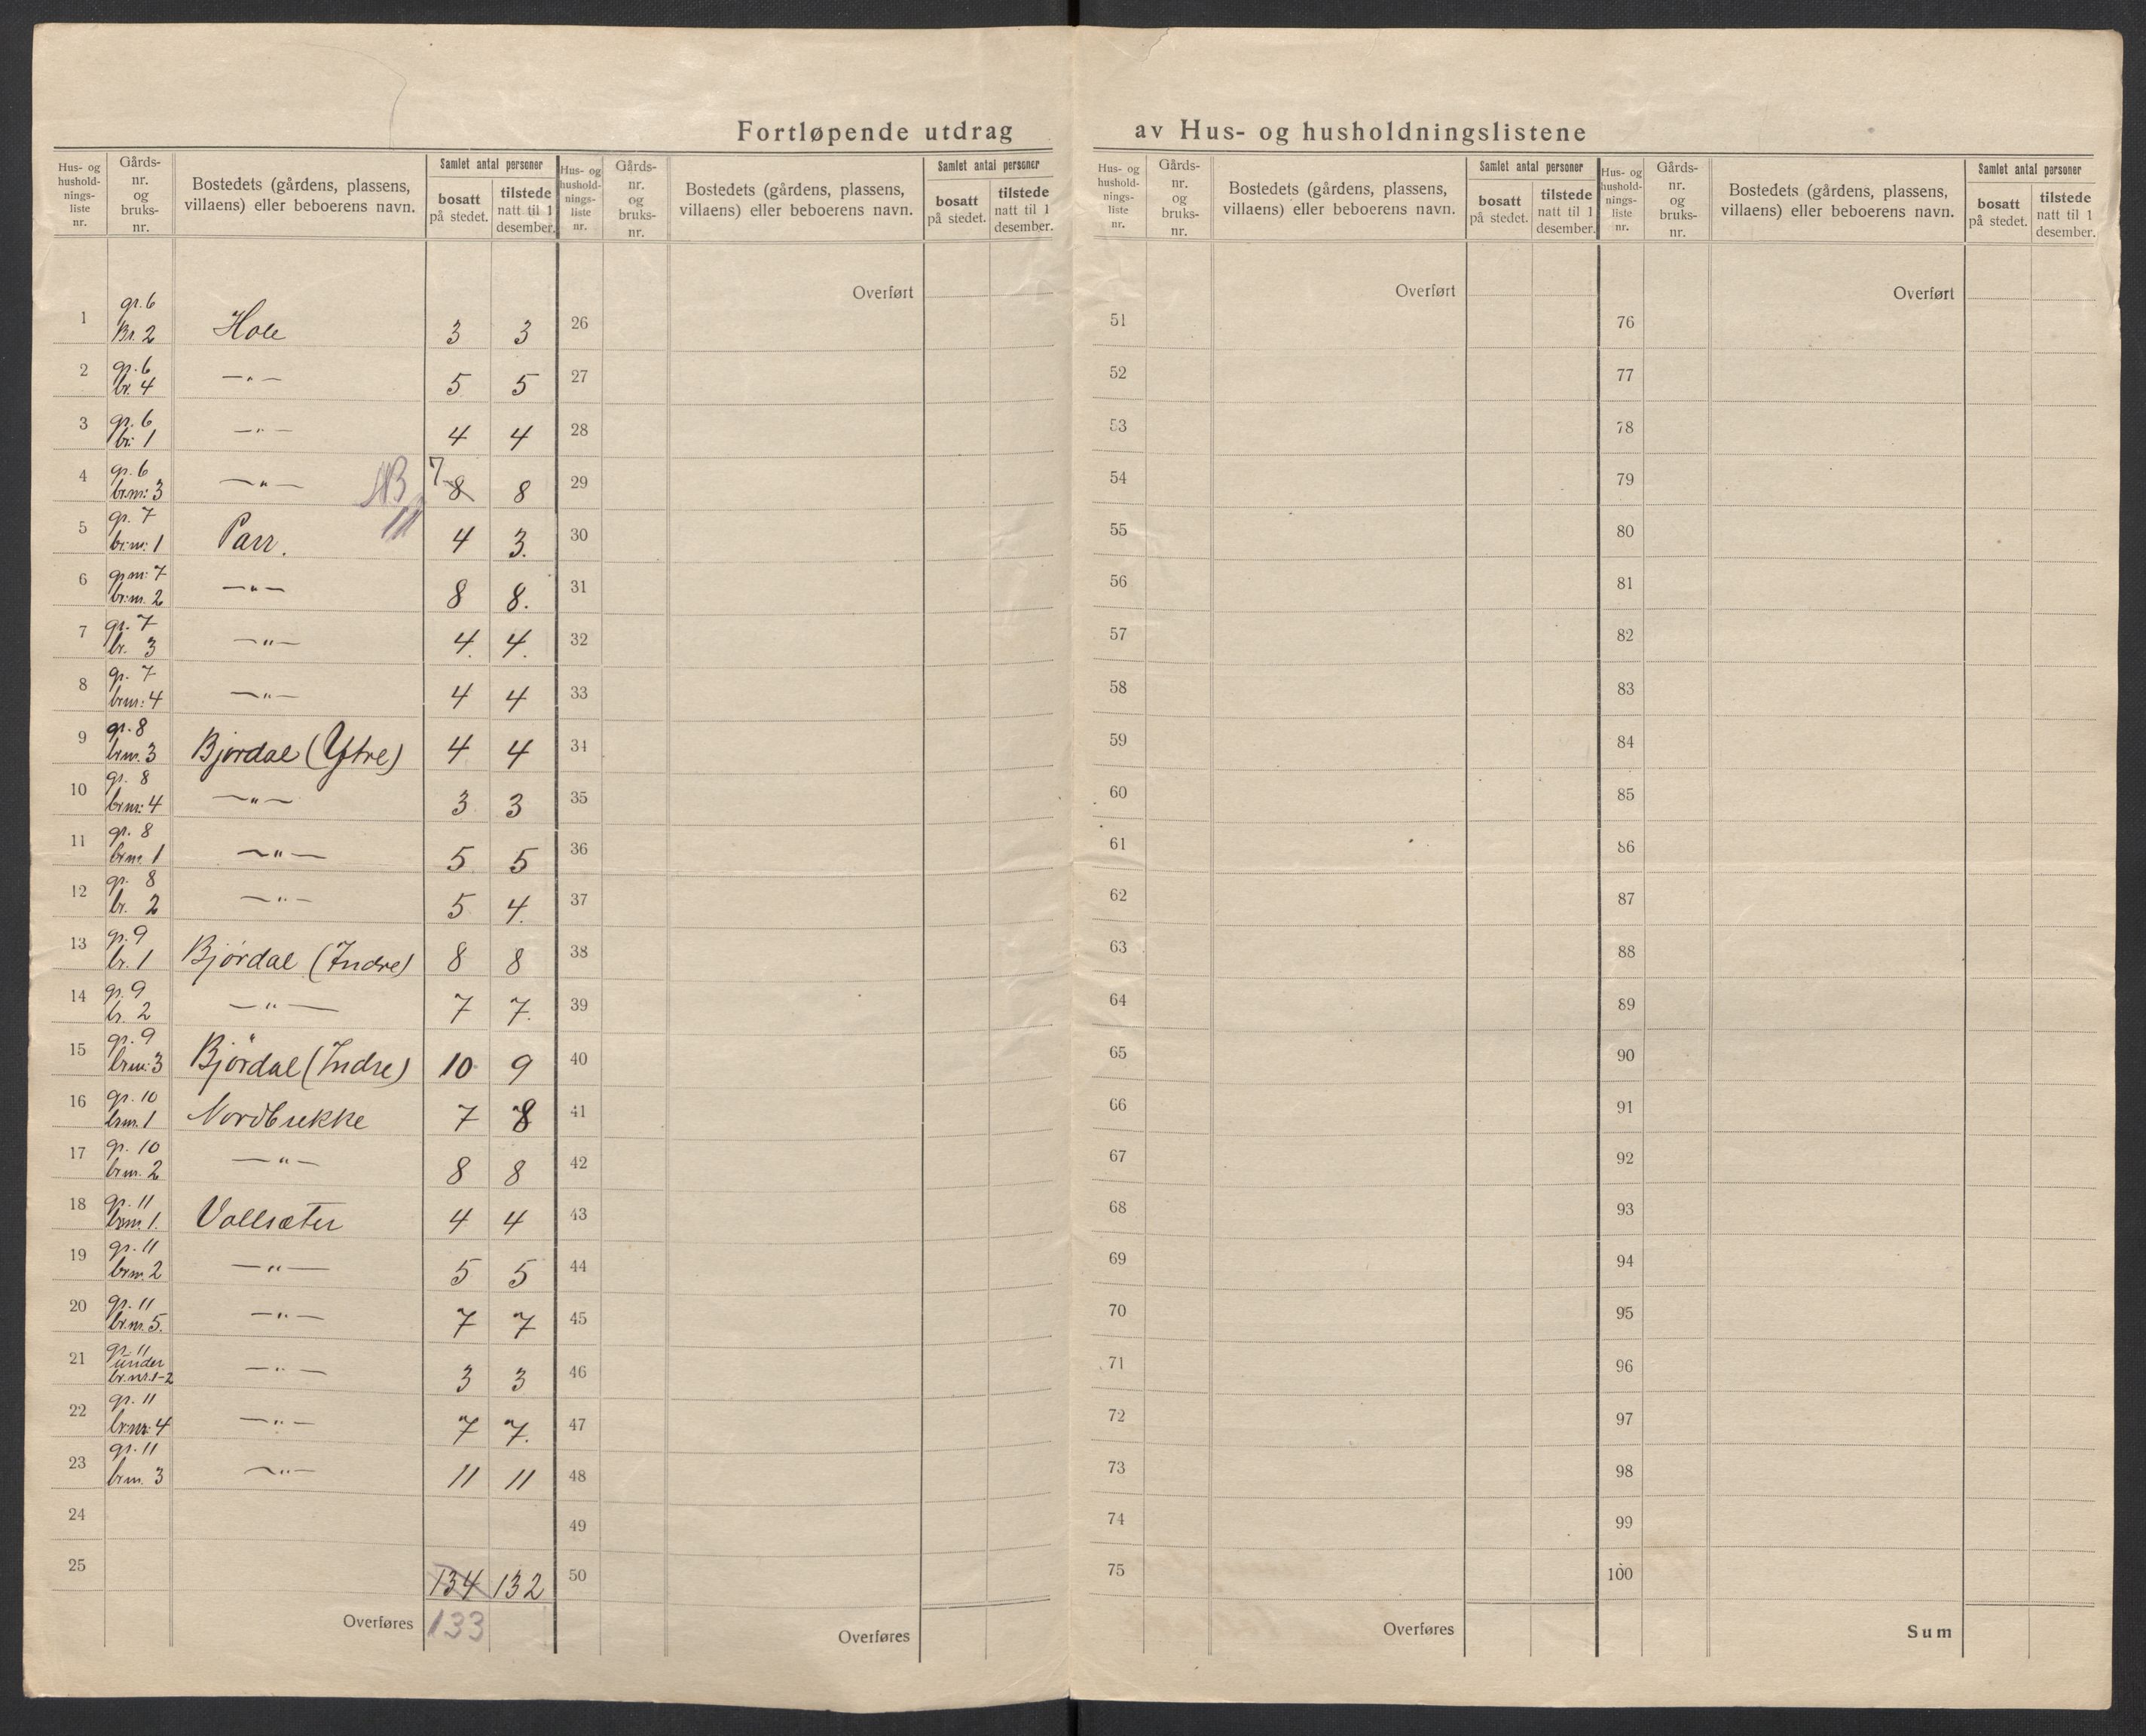 Fortløpende utdrag av Hus- og husholdningslistene
Hus- og husholdnings-liste nr. Gårds-nr. og bruks-nr. Bostedets (gårdens, plassens, villaens) eller beboerens navn. Samlet antal personer bosatt på stedet. tilstede natt til 1 desember.
Hus- og husholdnings-liste nr. Gårds-nr. og bruks-nr. Bostedets (gårdens, plassens, villaens) eller beboerens navn. Samlet antal personer bosatt på stedet. tilstede natt til 1 desember.
Hus- og husholdnings-liste nr. Gårds-nr. og bruks-nr. Bostedets (gårdens, plassens, villaens) eller beboerens navn. Samlet antal personer bosatt på stedet. tilstede natt til 1 desember.
Hus- og husholdnings-liste nr. Gårds-nr. og bruks-nr. Bostedets (gårdens, plassens, villaens) eller beboerens navn. Samlet antal personer bosatt på stedet. tilstede natt til 1 desember.
Overført Overført Overført
1 gr. 6 Br. 2 Hole 3 3 26 51 76
2 gr. 6 br. 4 —"— 5 5 27 52 77
3 gr. 6 br. 1 —"— 4 4 28 53 78
4 gr. 6 br.nr. 3 —"— NB 7 8 8 29 54 79
5 gr. 7 br.nr. 1 Parr. 4 3. 30 55 80
6 gr.nr. 7 br.nr. 2 —"— 8 8. 31 56 81
7 gr. 7 br. 3 —"— 4. 4. 32 57 82
8 gr. 7 br.nr. 4 —"— 4 4 33 58 83
9 gr. 8 br.nr. 3 Bjørdal (Ytre) 4 4 34 59 84
10 gr. 8 br.nr. 4 —"— 3 3 35 60 85
11 gr. 8 br.nr. 1 —"— 5 5 36 61 86
12 gr. 8 br. 2 —"— 5 4. 37 62 87
13 gr. 9 br. 1 Bjørdal (Indre) 8 8 38 63 88
14 gr. 9 br. 2 —"— 7 7. 39 64 89
15 gr. 9 br.nr. 3 Bjørdal (Indre) 10 9 40 65 90
16 gr. 10 br.nr. 1 Nordbukke 7 8 41 66 91
17 gr. 10 br.nr. 2 —"— 8 8 42 67 92
18 gr. 11 br.nr. 1. Vollsæter 4 4 43 68 93
19 gr. 11 br.nr. 2 —"— 5 5 44 69 94
20 gr. 11 br.nr. 5. —"— 7 7 45 70 95
21 gr. 11 under br.nr. 1-2 —"— 3 3 46 71 96
22 gr. 11 br.nr. 4 —"— 7 7. 47 72 97
23 gr. 11 br.nr. 3 —"— 11 11 48 73 98
24 49 74 99
25 134 132 50 75 100
Overføres 133 Overføres Overføres Sum